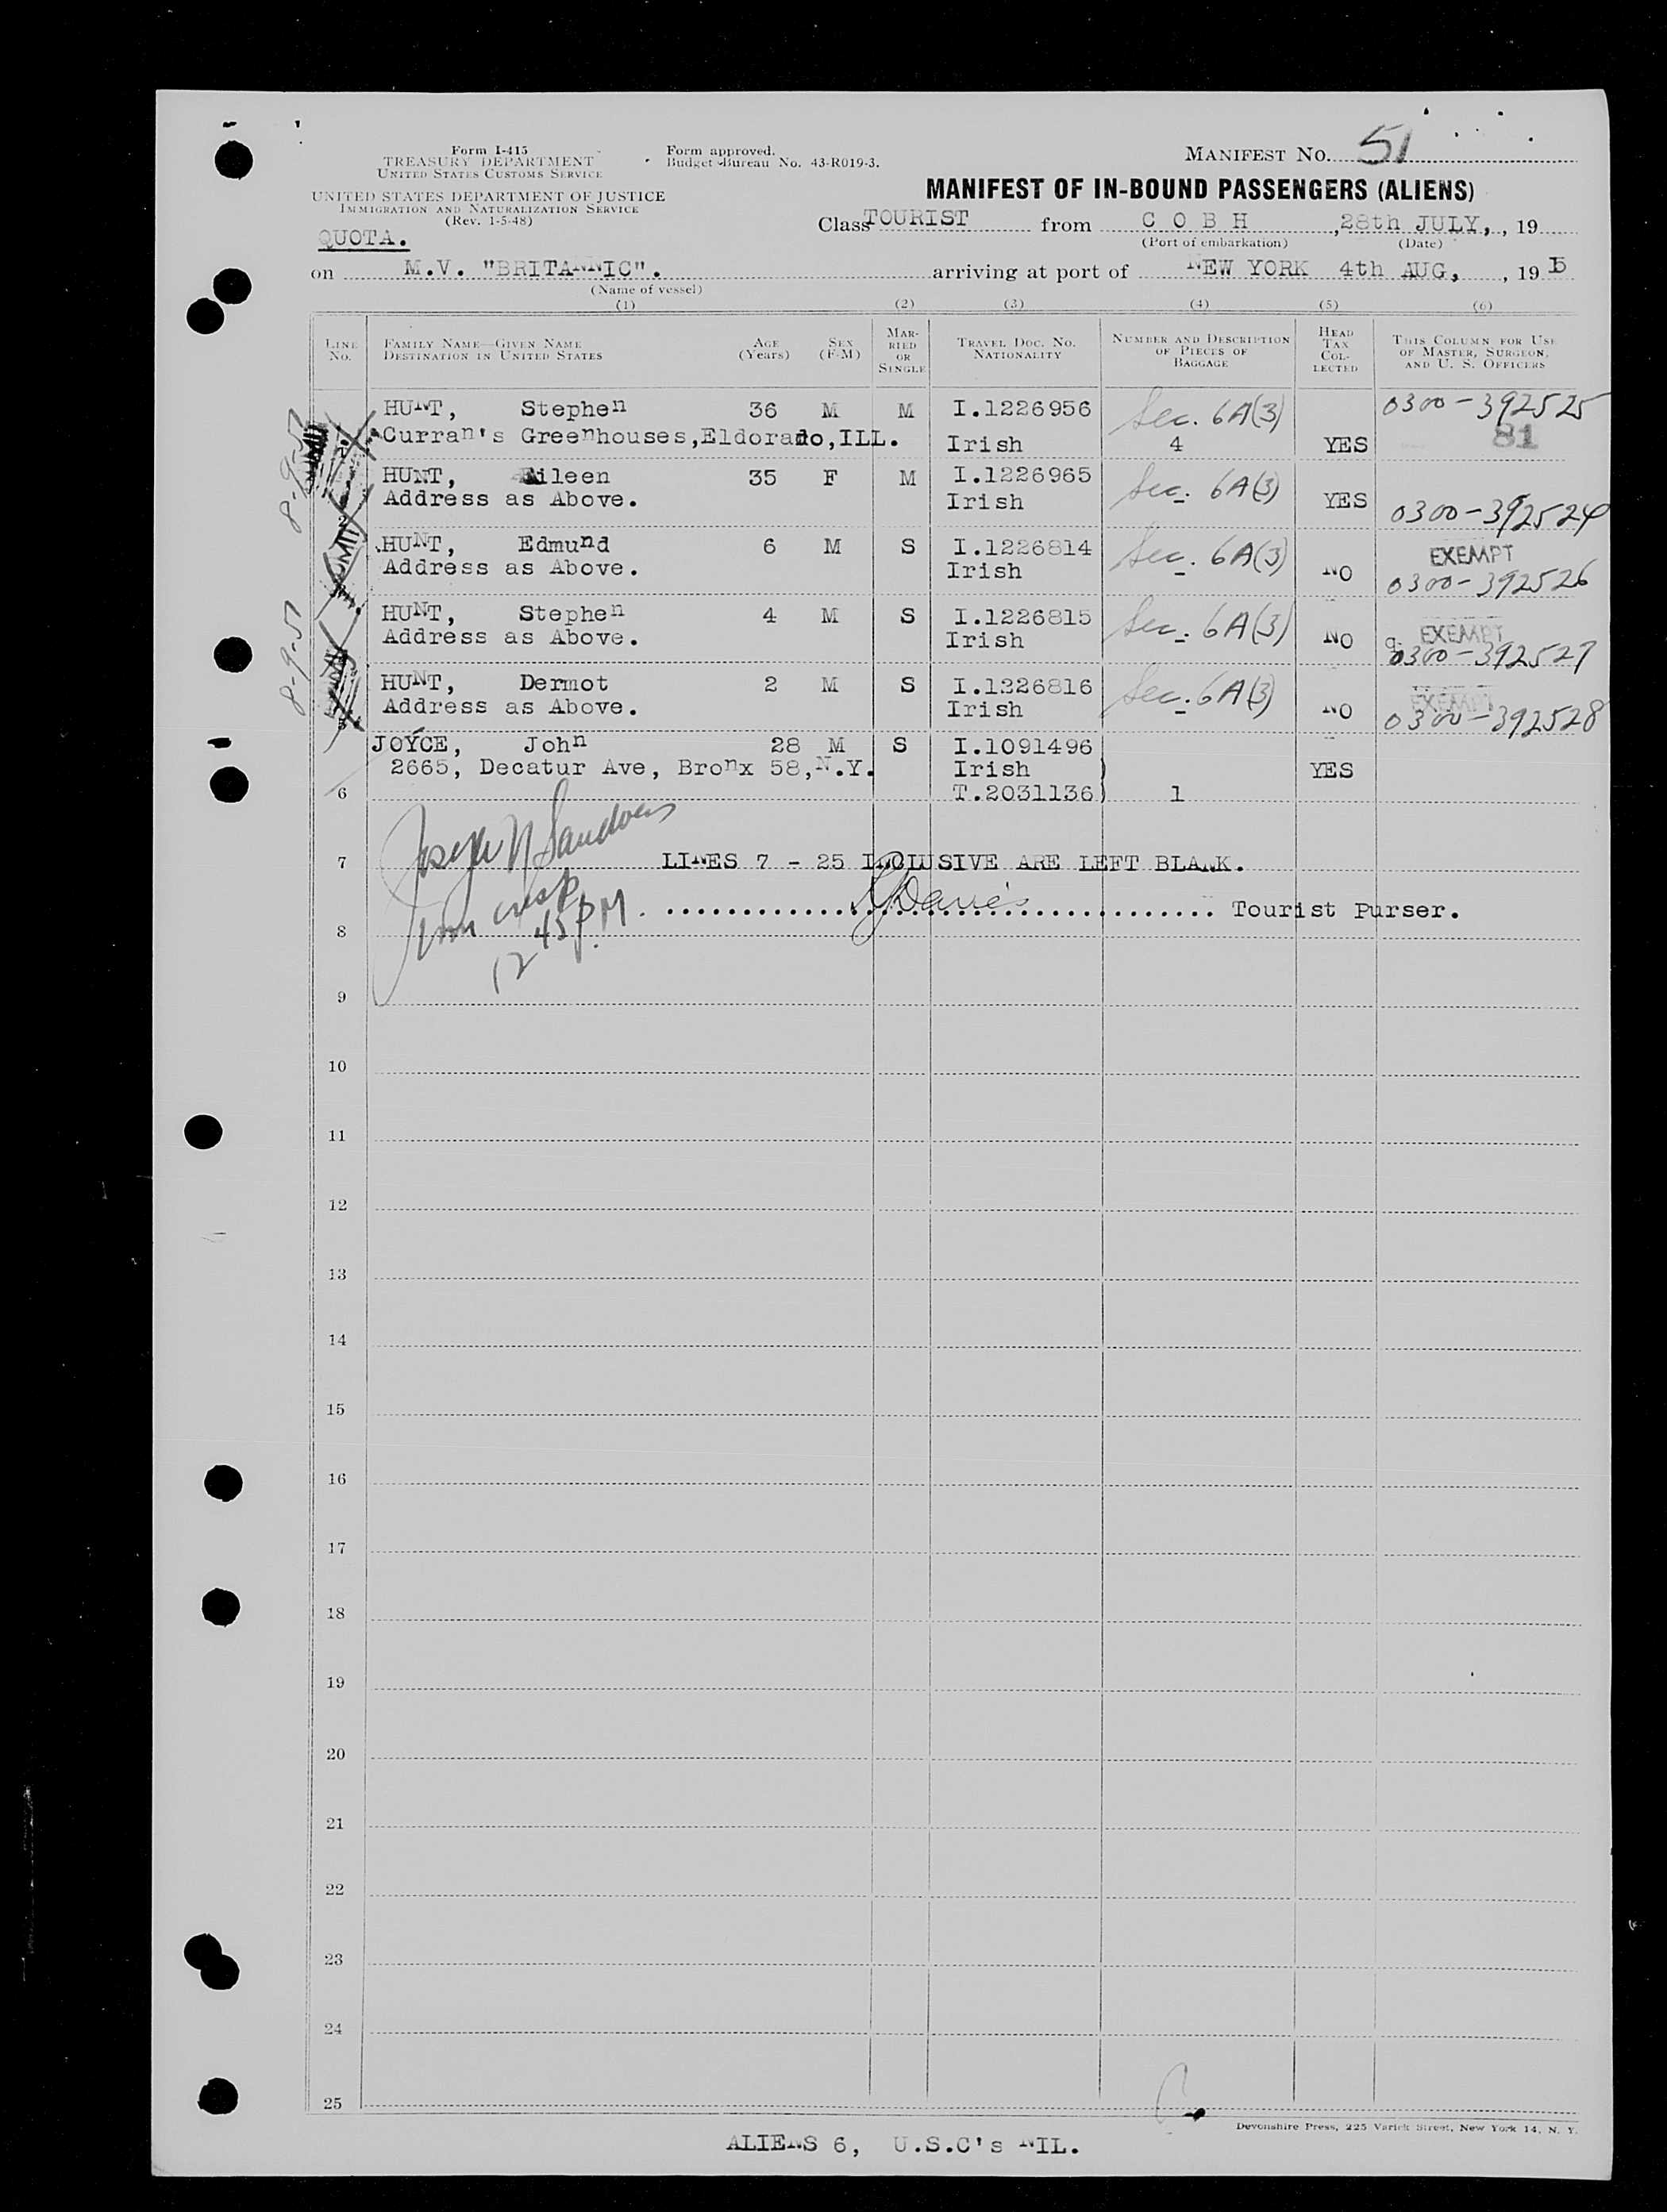 Form I-415
TREASURY DEPARTMENT
UNITED STATES CUSTOMS SERVICE
UNITED STATES DEPARTMENT OF JUSTICE
IMMIGRATION AND NATURALIZATION SERVICE
(Rev. 1-5-48)
Form approved.
Budget Bureau No. 43-R019-3.
MANIFEST NO. 51
MANIFEST OF IN-BOUND PASSENGERS (ALIENS)
QUOTA.
Class TOURIST from C O B H , 28th JULY, , 19
(Port of embarkation) (Date)
on M.V. "BRITANNIC". arriving at port of NEW YORK 4th AUG, , 19
(Name of vessel)
(1) (2) (3) (4) (5) (6)
LINE NO. FAMILY NAME—GIVEN NAME DESTINATION IN UNITED STATES AGE (Years) SEX (F-M) MARRIED OR SINGLE TRAVEL DOC. NO. NATIONALITY NUMBER AND DESCRIPTION OF PIECES OF BAGGAGE HEAD TAX COLLECTED THIS COLUMN FOR USE OF MASTER, SURGEON, AND U. S. OFFICERS
HUNT, Stephen 36 M M I.1226956 Sec. 6A(3) 0300-392525
Curran's Greenhouses, Eldorado, ILL. Irish 4 YES 81
HUNT, Eileen 35 F M I.1226965 Sec. 6A(3)
2 Address as Above. Irish YES 0300-392524
HUNT, Edmund 6 M S I.1226814 Sec. 6A(3) EXEMPT
Address as Above. Irish NO 0300-392526
HUNT, Stephen 4 M S I.1226815 Sec. 6A(3) EXEMPT
Address as Above. Irish NO 0300-392527
HUNT, Dermot 2 M S I.1226816 Sec. 6A(3) EXEMPT
Address as Above. Irish NO 0300-392528
8-9-51
8-9-51
JOYCE, John 28 M S I.1091496
2665, Decatur Ave, Bronx 58, N.Y. Irish ) YES
6 T.2031136) 1
Joseph N
7 LINES 7 - 25 INCLUSIVE ARE LEFT BLANK.
Imm insp
Davies Tourist Purser.
12 45 P.M.
8
9
10
11
12
13
14
15
16
17
18
19
20
21
22
23
24
25
Devonshire Press, 225 Varick Street, New York 14, N. Y.
ALIENS 6, U.S.C's NIL.